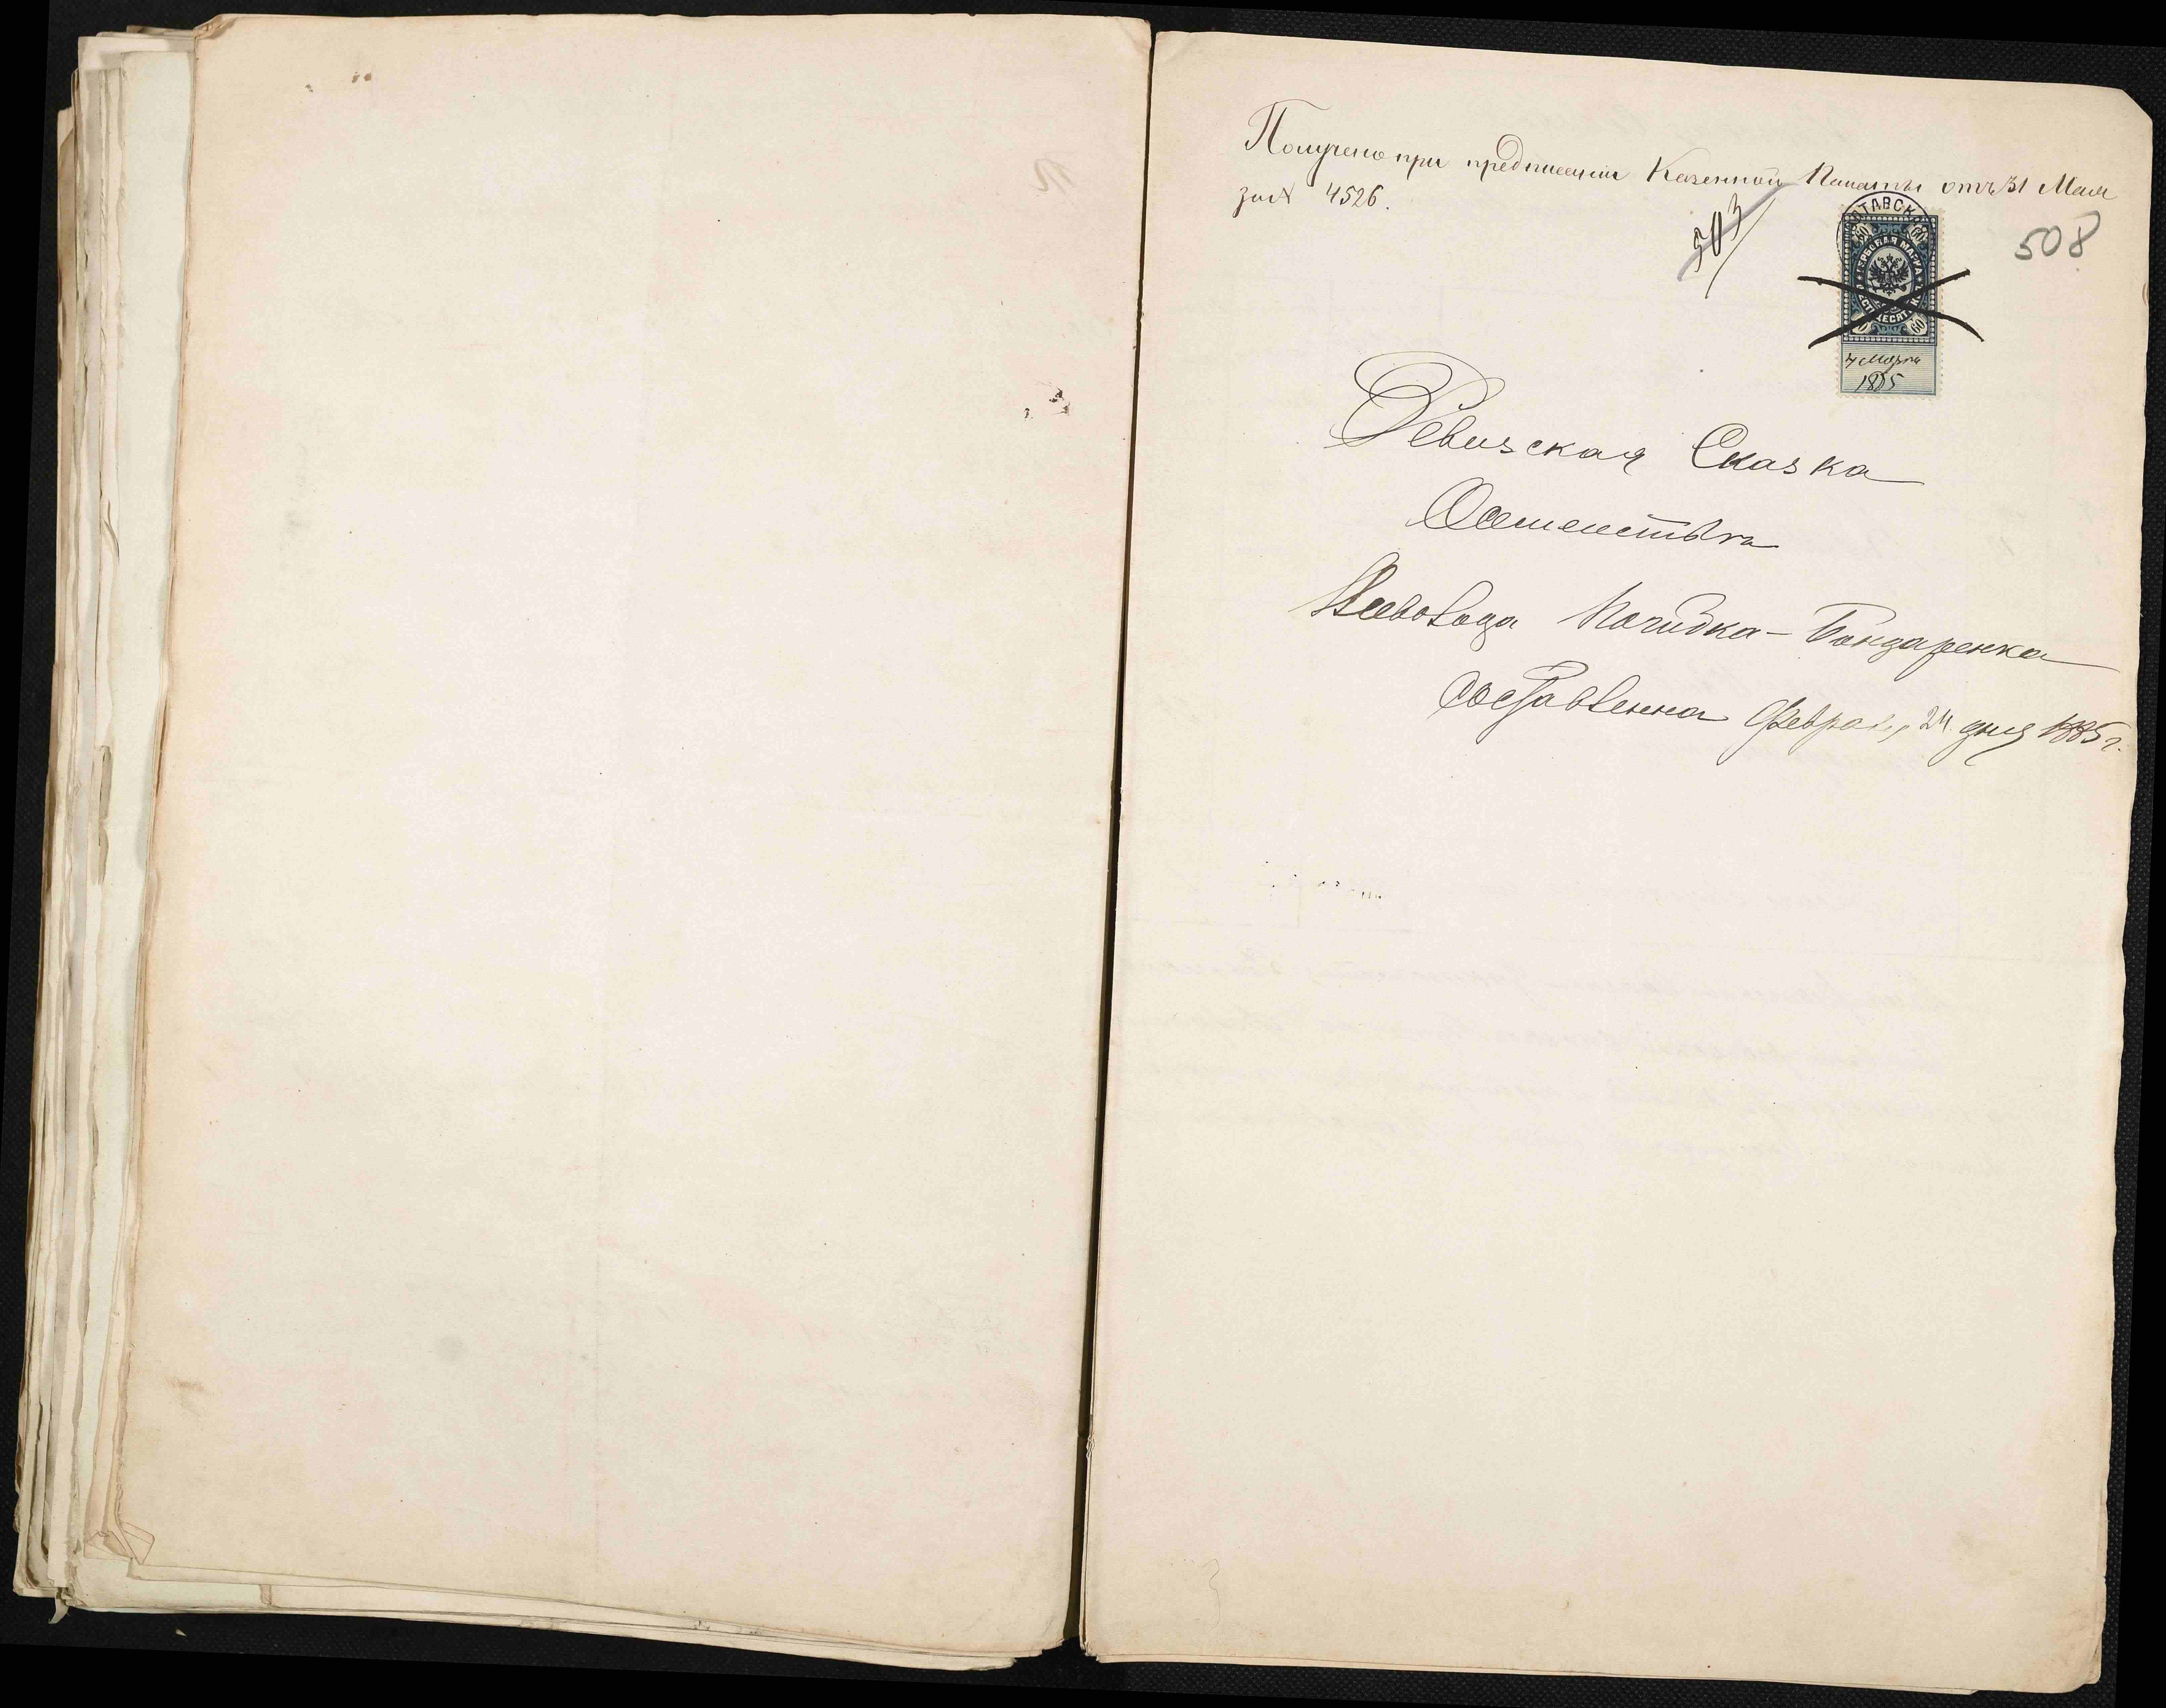 Получено при предписании Казенной Палаты отъ 31 Мая
за № 4526.
503
508
ПОЛТАВСК
ГЕРБОВАЯ МАРКА
60 60
60 60
4 Марта
1885
Ревизская Сказка
Семейства
Бондаренка
составленна Февраля 24 дня 1885 г.